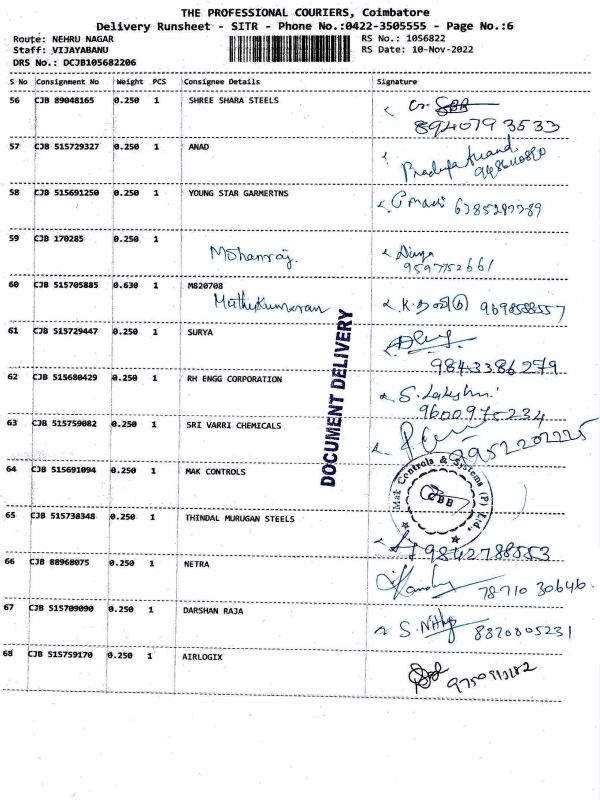 THE PROFESSIONAL COURIERS, Coimbatore
Delivery Runsheet - SITR - Phone No.:0422-3505555 - Page No.:6
Route: NEHRU NAGAR RS No.: 1056822
Staff: VIJAYABANU RS Date: 10-Nov-2022
DRS No.: DCJB105682206
S No Consignment No Weight PCS Consignee Details Signature
56 CJB 89048165 0.250 1 SHREE SHARA STEELS
8940793533
57 CJB 515729327 0.250 1 ANAD
58 CJB 515691250 0.250 1 YOUNG STAR GARMERTNS
59 CJB 170285 0.250 1
Mohanraj. Divya
9597152661
60 CJB 515705885 0.630 1 M820708
Muthukumaran
61 CJB 515729447 0.250 1 SURYA
9843386279
62 CJB 515680429 0.250 1 RH ENGG CORPORATION
S. Lakshmi
9600975234
63 CJB 515759082 0.250 1 SRI VARRI CHEMICALS
9952202225
64 CJB 515691094 0.250 1 MAK CONTROLS
Mak Controls & Systems (P) Ltd.
CBE
65 CJB 515738348 0.250 1 THINDAL MURUGAN STEELS
9842788553
66 CJB 88968075 0.250 1 NETRA
78710 30646
67 CJB 515709090 0.250 1 DARSHAN RAJA
S. Nithya 8870805231
68 CJB 515759170 0.250 1 AIRLOGIX
DOCUMENT DELIVERY